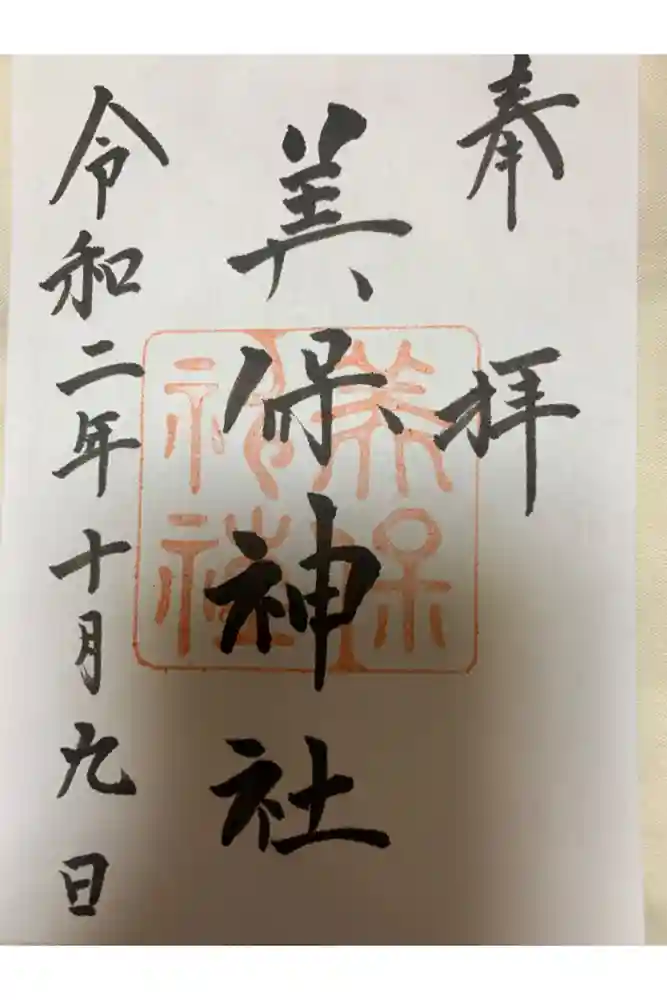 奉拝
美保神社
美保
神社
令和二年十月九日